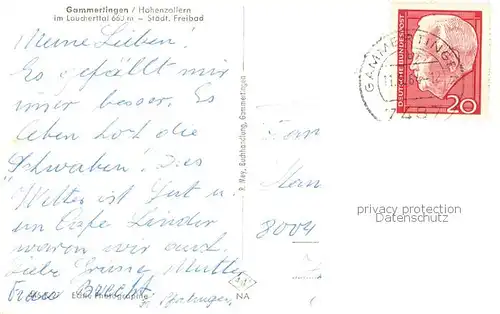 Gammertingen / Hohenzollern
im Laucherttal 663 m – Städt. Freibad
Meine Lieben!
Es gefällt mir
immer besser. Es
leben hoch die
"Schwaben". Das
Wetter ist gut u.
im Cafe Linder
waren wir auch.
Liebe Grüsse, Mutter
Frau Brecht
Echte Photographie
NA
P. Mey, Buchhandlung, Gammertingen
8004
GAMMERTINGEN
7487
DEUTSCHE BUNDESPOST
20
privacy protection
Datenschutz